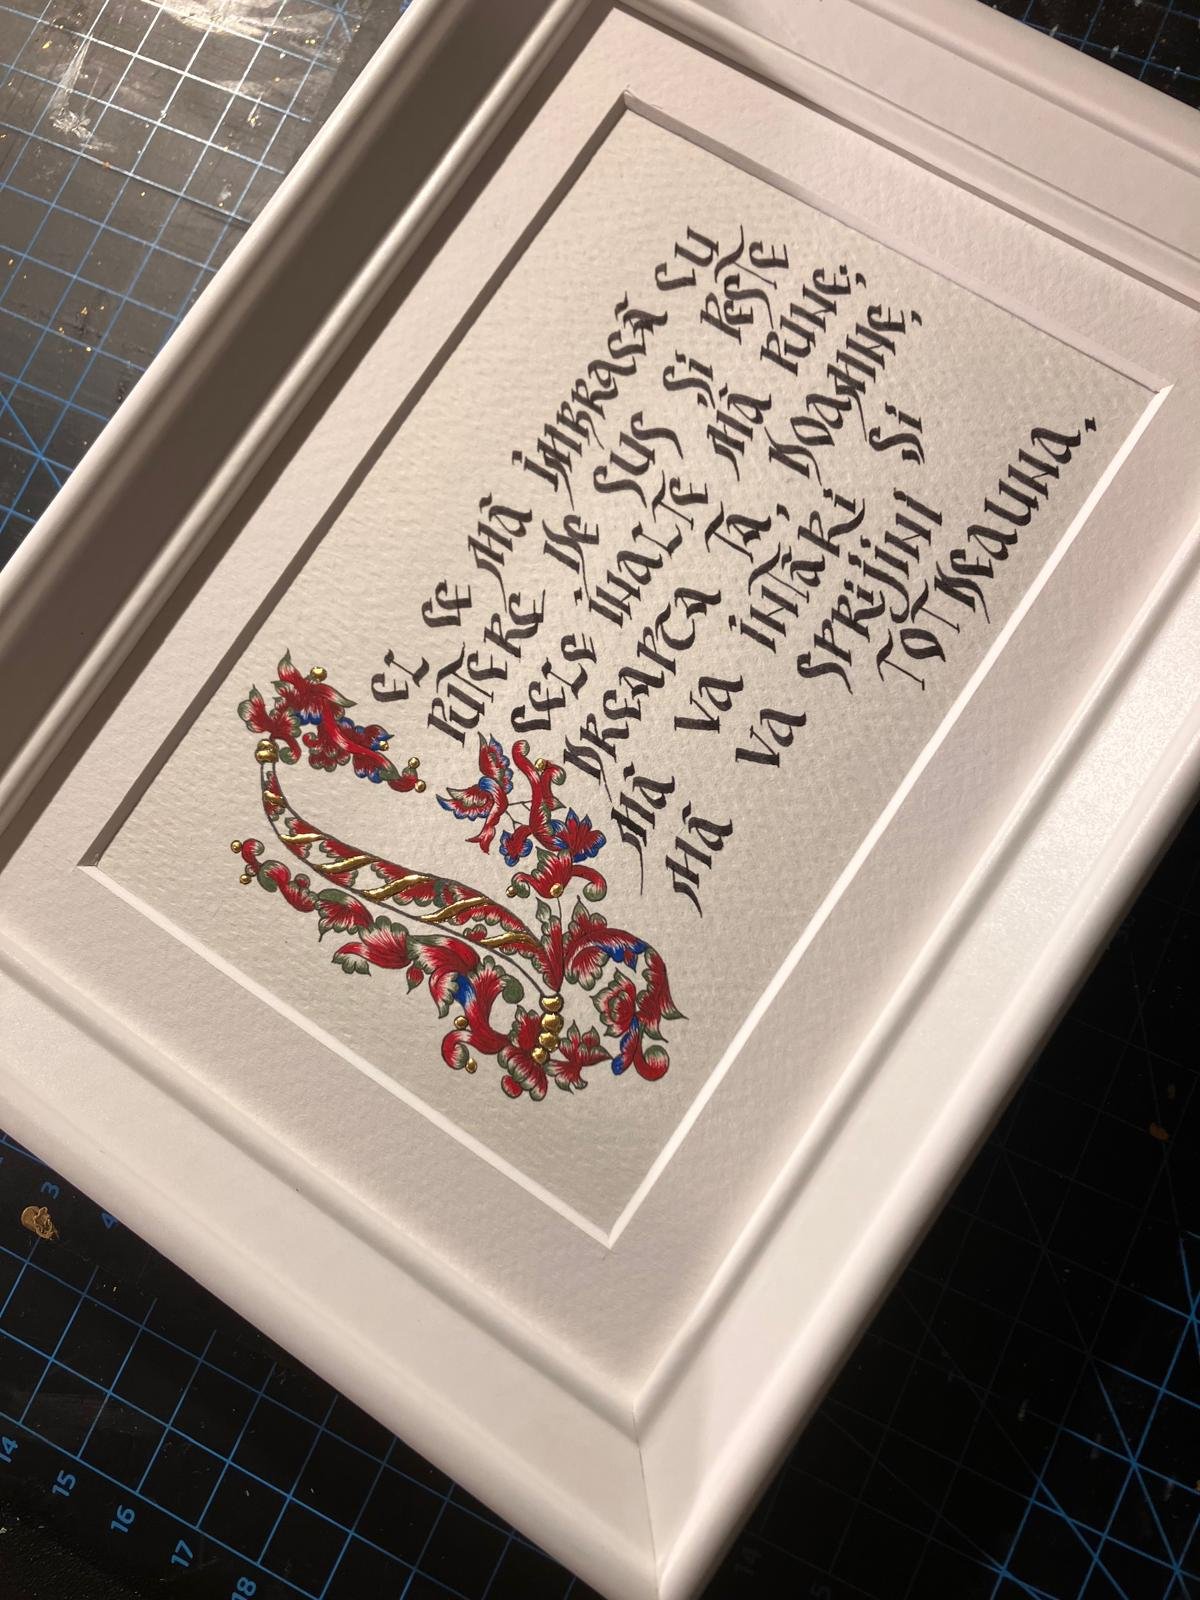 CEL CE MĂ ÎMBRACĂ CU
PUTERE DE SUS ȘI PESTE
CELE INALTE MĂ PUNE,
DREAPTA TA, DOAMNE,
MĂ VA INTĂRI ȘI
MĂ VA SPRIJINI
TOTDEAUNA.
3
4
14
15
16
17
18
14